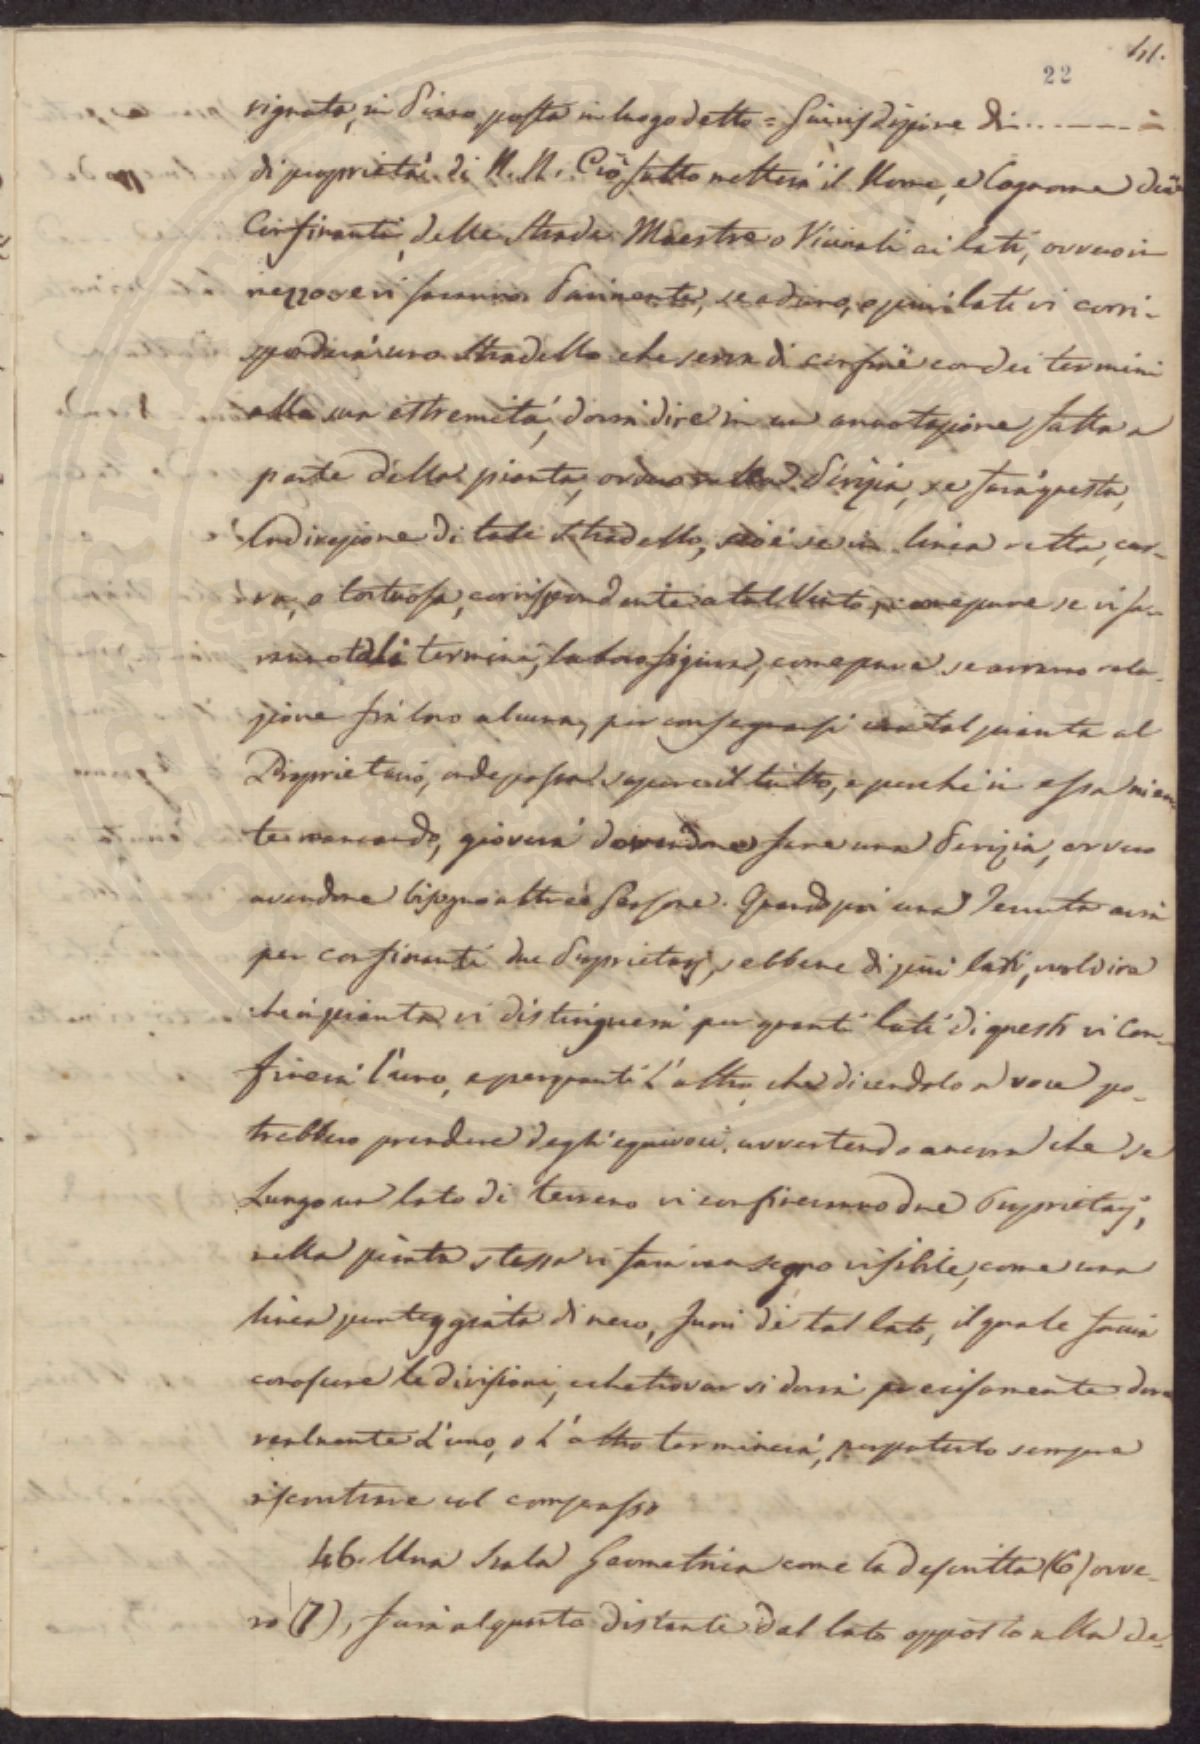 41.
22
vignata, in Piano, posta in luogo detto = Giurisdizione di ........ =
di proprietà di N. N. Ciò fatto metterà il Nome, e Cognome dei
Confinanti, delle Strade Maestre o Vicinali ai lati, ovvero in
mezzo se vi saranno. Parimente, se ad uno, o più lati vi corri-
sponderà uno Stradello che serva di confine con dei termini
alla sua estremità, dovrà dire in un annotazione fatta a
parte della pianta, ovvero nella Perizia, se farà questa,
la direzione di tale Stradello, cioè se in linea retta, cur-
va, o tortuosa, corrispondente a tal Vento, come pure se vi sa-
ranno tali termini, la loro figura, come pure se avranno rela-
zione frà loro alcuna, per consegnarsi una tal pianta al
Proprietario, onde possa sapere il tutto, e perchè in essa nien-
te mancando, gioverà dovendone fare una Perizia, ovvero
avendone bisogno altre Persone. Quando poi una Tenuta avrà
per confinanti due Proprietarj, sebbene di più lati, vuol dire
che in pianta vi distinguerà per quanti lati di questi vi con-
finerà l'uno, e per quanti l'altro, che dicendolo a voce po-
trebbero prendere degli equivoci, avvertendo ancora che se
Lungo un lato di terreno vi confineranno due Proprietarj,
nella pianta stessa vi farà un segno visibile, come una
linea punteggiata di nero, fuori di tal lato, il quale faccia
conoscere le divisioni, e che trovar si dovrà precisamente dove
realmente l'uno, o l'altro terminerà, per poterlo sempre
riscontrare col compasso
46. Una Scala Geometrica come la descritta (6) ovve-
ro (7), farà alquanto distante dal lato opposto alla de-